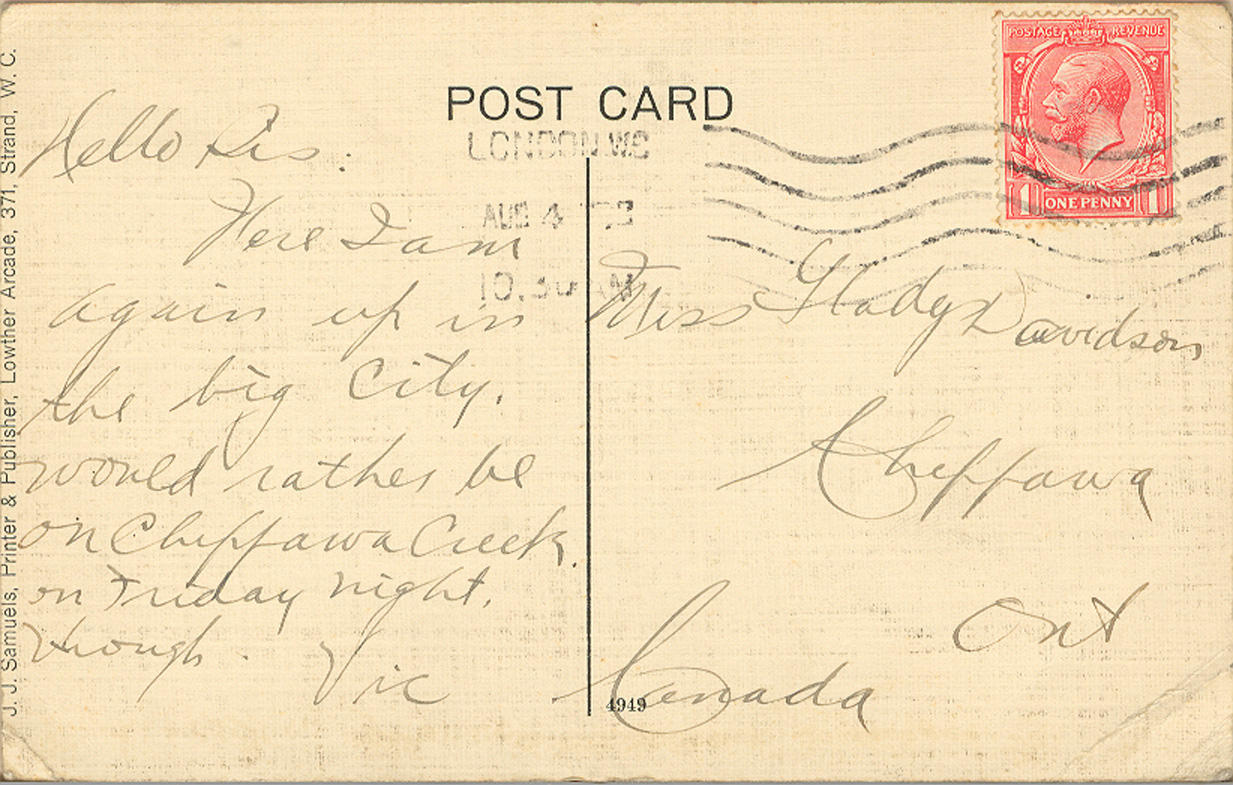 POST CARD
LONDON. W.C
AUG 4
10.30 AM
POSTAGE REVENUE
1 ONE PENNY 1
Hello Sis.
Here I am
again up in
the big City.
would rather be
on Chippawa Creek.
on Friday night.
though. Vic
Miss Gladys Davidson
Chippawa
Ont
Canada
4949
J. J. Samuels, Printer & Publisher, Lowther Arcade, 371, Strand, W. C.